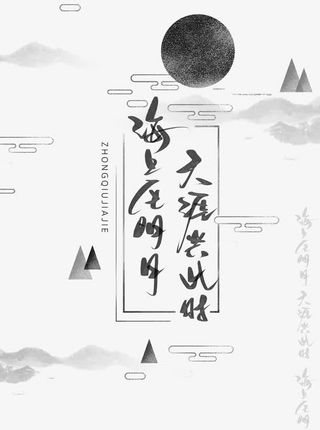 海上生明月
天涯共此时
ZHONGQIUJIAJIE
海上生明月天涯共此时 海上生明月